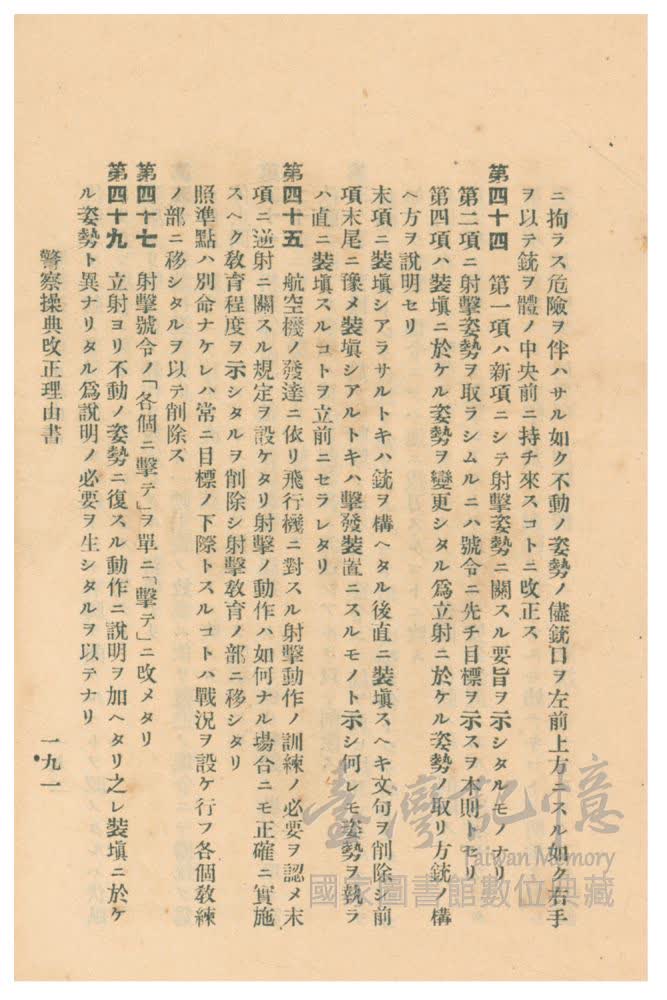 ニ拘ラス危險ヲ伴ハサル如ク不動ノ姿勢ノ儘銃口ヲ左前上方ニスル如ク右手
ヲ以テ銃ヲ體ノ中央前ニ持チ來スコトニ改正ス
第四十四　第一項ハ新項ニシテ射擊姿勢ニ關スル要旨ヲ示シタルモノナリ
第二項ニ射擊姿勢ヲ取ラシムルニハ號令ニ先チ目標ヲ示スヲ本則トセリ
第四項ハ裝塡ニ於ケル姿勢ヲ變更シタル爲立射ニ於ケル姿勢ノ取リ方銃ノ構
ヘ方ヲ說明セリ
末項ニ裝塡シアラサルトキハ銃ヲ構ヘタル後直ニ裝塡スヘキ文句ヲ削除シ前
項末尾ニ豫メ裝塡シアルトキハ擊發裝置ニスルモノト示シ何レモ姿勢ヲ執ラ
ハ直ニ裝塡スルコトヲ立前ニセラレタリ
第四十五　航空機ノ發達ニ依リ飛行機ニ對スル射擊動作ノ訓練ノ必要ヲ認メ末
項ニ逆射ニ關スル規定ヲ設ケタリ射擊ノ動作ハ如何ナル場合ニモ正確ニ實施
スヘク敎育程度ヲ示シタルヲ削除シ射擊敎育ノ部ニ移シタリ
照準點ハ別命ナケレハ常ニ目標ノ下際トスルコトハ戰況ヲ設ケ行フ各個敎練
ノ部ニ移シタルヲ以テ削除ス
第四十七　射擊號令ノ「各個ニ擊テ」ヲ單ニ「擊テ」ニ改メタリ
第四十九　立射ヨリ不動ノ姿勢ニ復スル動作ニ說明ヲ加ヘタリ之レ裝塡ニ於ケ
ル姿勢ト異ナリタル爲說明ノ必要ヲ生シタルヲ以テナリ
警察操典改正理由書
一九一
臺灣記憶
Taiwan Memory
國家圖書館數位典藏